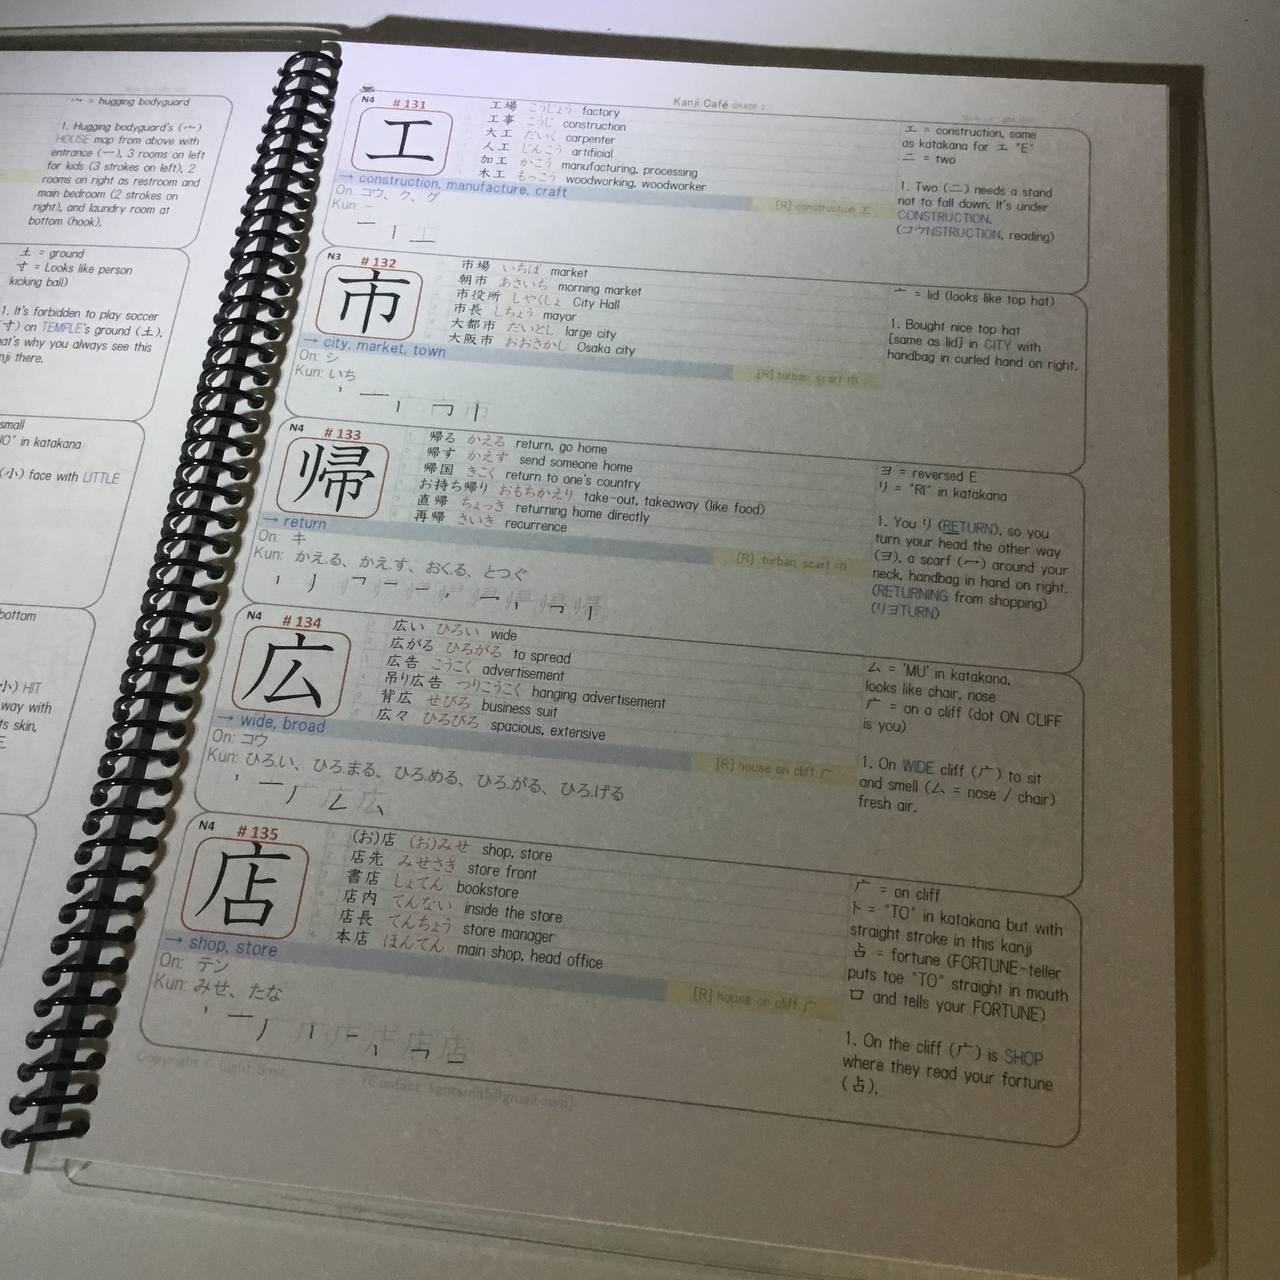 ⺈ = hugging bodyguard
1. Hugging bodyguard's (⺈)
HOUSE map from above with
entrance (一), 3 rooms on left
for kids (3 strokes on left), 2
rooms on right as restroom and
main bedroom (2 strokes on
right), and laundry room at
bottom (hook).
土 = ground
寸 = Looks like person
kicking ball)
1. It's forbidden to play soccer
(寸) on TEMPLE's ground (土),
that's why you always see this
there.
small
in katakana
(小) face with LITTLE
bottom
(小) HIT
way with
skin,
Kanji Café GRADE 2
N4 # 131
工
工場 こうじょう factory
工事 こうじ construction
大工 だいく carpenter
人工 じんこう artificial
加工 かこう manufacturing, processing
木工 もっこう woodworking, woodworker
→ construction, manufacture, craft
[R] construction 工
On: コウ、ク、グ
Kun: -
工 = construction, same
as katakana for エ "E"
二 = two
1. Two (二) needs a stand
not to fall down. It's under
CONSTRUCTION.
(コウNSTRUCTION, reading)
N3 # 132
市
市場 いちば market
朝市 あさいち morning market
市役所 しやくしょ City Hall
市長 しちょう mayor
大都市 だいとし large city
大阪市 おおさかし Osaka city
→ city, market, town
[R] turban, scarf 巾
On: シ
Kun: いち
亠 = lid (looks like top hat)
1. Bought nice top hat
[same as lid] in CITY with
handbag in curled hand on right.
N4 # 133
帰
帰る かえる return, go home
帰す かえす send someone home
帰国 きこく return to one's country
お持ち帰り おもちかえり take-out, takeaway (like food)
直帰 ちょっき returning home directly
再帰 さいき recurrence
→ return
[R] turban, scarf 巾
On: キ
Kun: かえ.る、かえ.す、おく.る、とつ.ぐ
ヨ = reversed E
リ = "RI" in katakana
1. You リ (RETURN), so you
turn your head the other way
(ヨ), a scarf (冖) around your
neck, handbag in hand on right.
(RETURNING from shopping)
(リヨTURN)
N4 # 134
広
広い ひろい wide
広がる ひろがる to spread
広告 こうこく advertisement
吊り広告 つりこうこく hanging advertisement
背広 せびろ business suit
広々 ひろびろ spacious, extensive
→ wide, broad
[R] house on cliff 广
On: コウ
Kun: ひろ.い、ひろ.まる、ひろ.める、ひろ.がる、ひろ.げる
ム = 'MU' in katakana,
looks like chair, nose
广 = on a cliff (dot ON CLIFF
is you)
1. On WIDE cliff (广) to sit
and smell (ム = nose / chair)
fresh air.
N4 # 135
店
(お)店 (お)みせ shop, store
店先 みせさき store front
書店 しょてん bookstore
店内 てんない inside the store
店長 てんちょう store manager
本店 ほんてん main shop, head office
→ shop, store
[R] house on cliff 广
On: テン
Kun: みせ、たな
广 = on cliff
ト = "TO" in katakana but with
straight stroke in this kanji
占 = fortune (FORTUNE-teller
puts toe "TO" straight in mouth
口 and tells your FORTUNE)
1. On the cliff (广) is SHOP
where they read your fortune
(占).
Copyright © Light Smit
(Contant: lightsmit5@gmail.com)